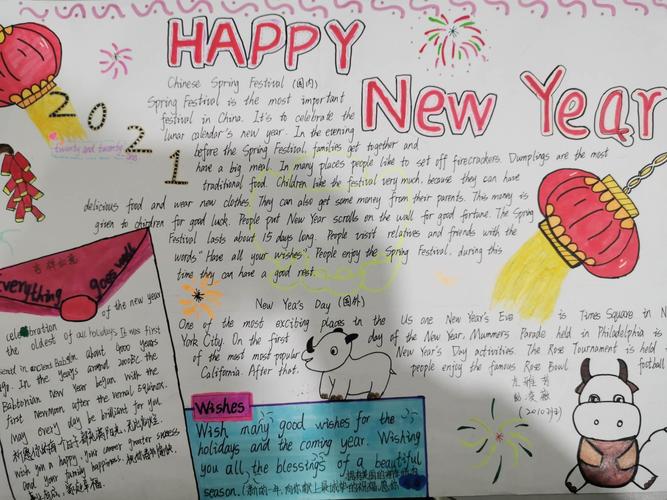 HAPPY
New Year
2021
twenty and twenty
Chinese Spring Festival (国内)
Spring Festival is the most important
festival in China. It's to celebrate the
lunar calendar's new year. In the evening
before the Spring Festival families get together and
have a big meal. In many places people like to set off firecrackers. Dumplings are the most
traditional food. Children like the festival very much, because they can have
delicious food and wear new clothes. They can also get some money from their parents. This money is
given to children for good luck. People put New Year scrolls on the wall for good fortune. The Spring
Festival lasts about 15 days long. People visit relatives and friends with the
words "Have all your wishes". People enjoy the Spring Festival, during this
time they can have a good rest.
New Year's Day (国外)
One of the most exciting places in the Us one New Year's Eve is Times Square in N
York City. On the first day of the New Year. Mummers Parade held in Philadelphia is
of the most most popular New Year's Day activities. The Rose Tournament is held
California. After that. people enjoy the famous Rose Bowl football
吉祥如意
Everything goes well
of the new year
celebration
the oldest of all holidays It was first
in ancient Babylon about 4000 years
ago. In the years around 2000BC the
Babtonian New Year began with the
first New Moon after the vernal Equinox.
May every day be brilliant for you.
wish you a happy, your career greater success
and your family happiness.
Wishes
Wish many good wishes for the
holidays and the coming year. Wishing
you all the blessings of a beautiful
season. (新的一年,向你献上最诚挚的祝福,愿你